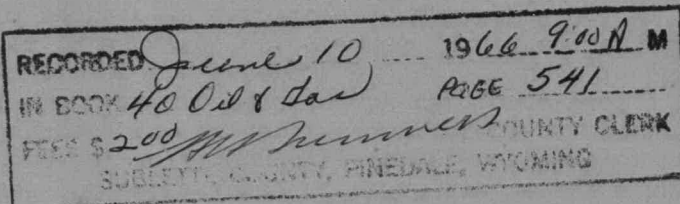 RECORDED June 10 1966 9:00 A M
IN BOOK 40 Oil & Gas PAGE 541
FEES $ 2.00 COUNTY CLERK
SUBLETTE COUNTY, PINEDALE, WYOMING